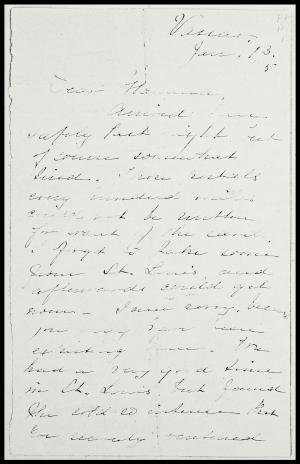 Jan. 13.
Dear
Arrived here
safely last night, but
of course somewhat
tired.
every hundred miles
could not be written
for want of the card.
I forgot to take some
from St. Louis, and
afterwards could get
none - I am sorry,
you may have been
expecting them. We
had a very good time
in St. Louis, but found
the cold so intense that
we rarely ventured